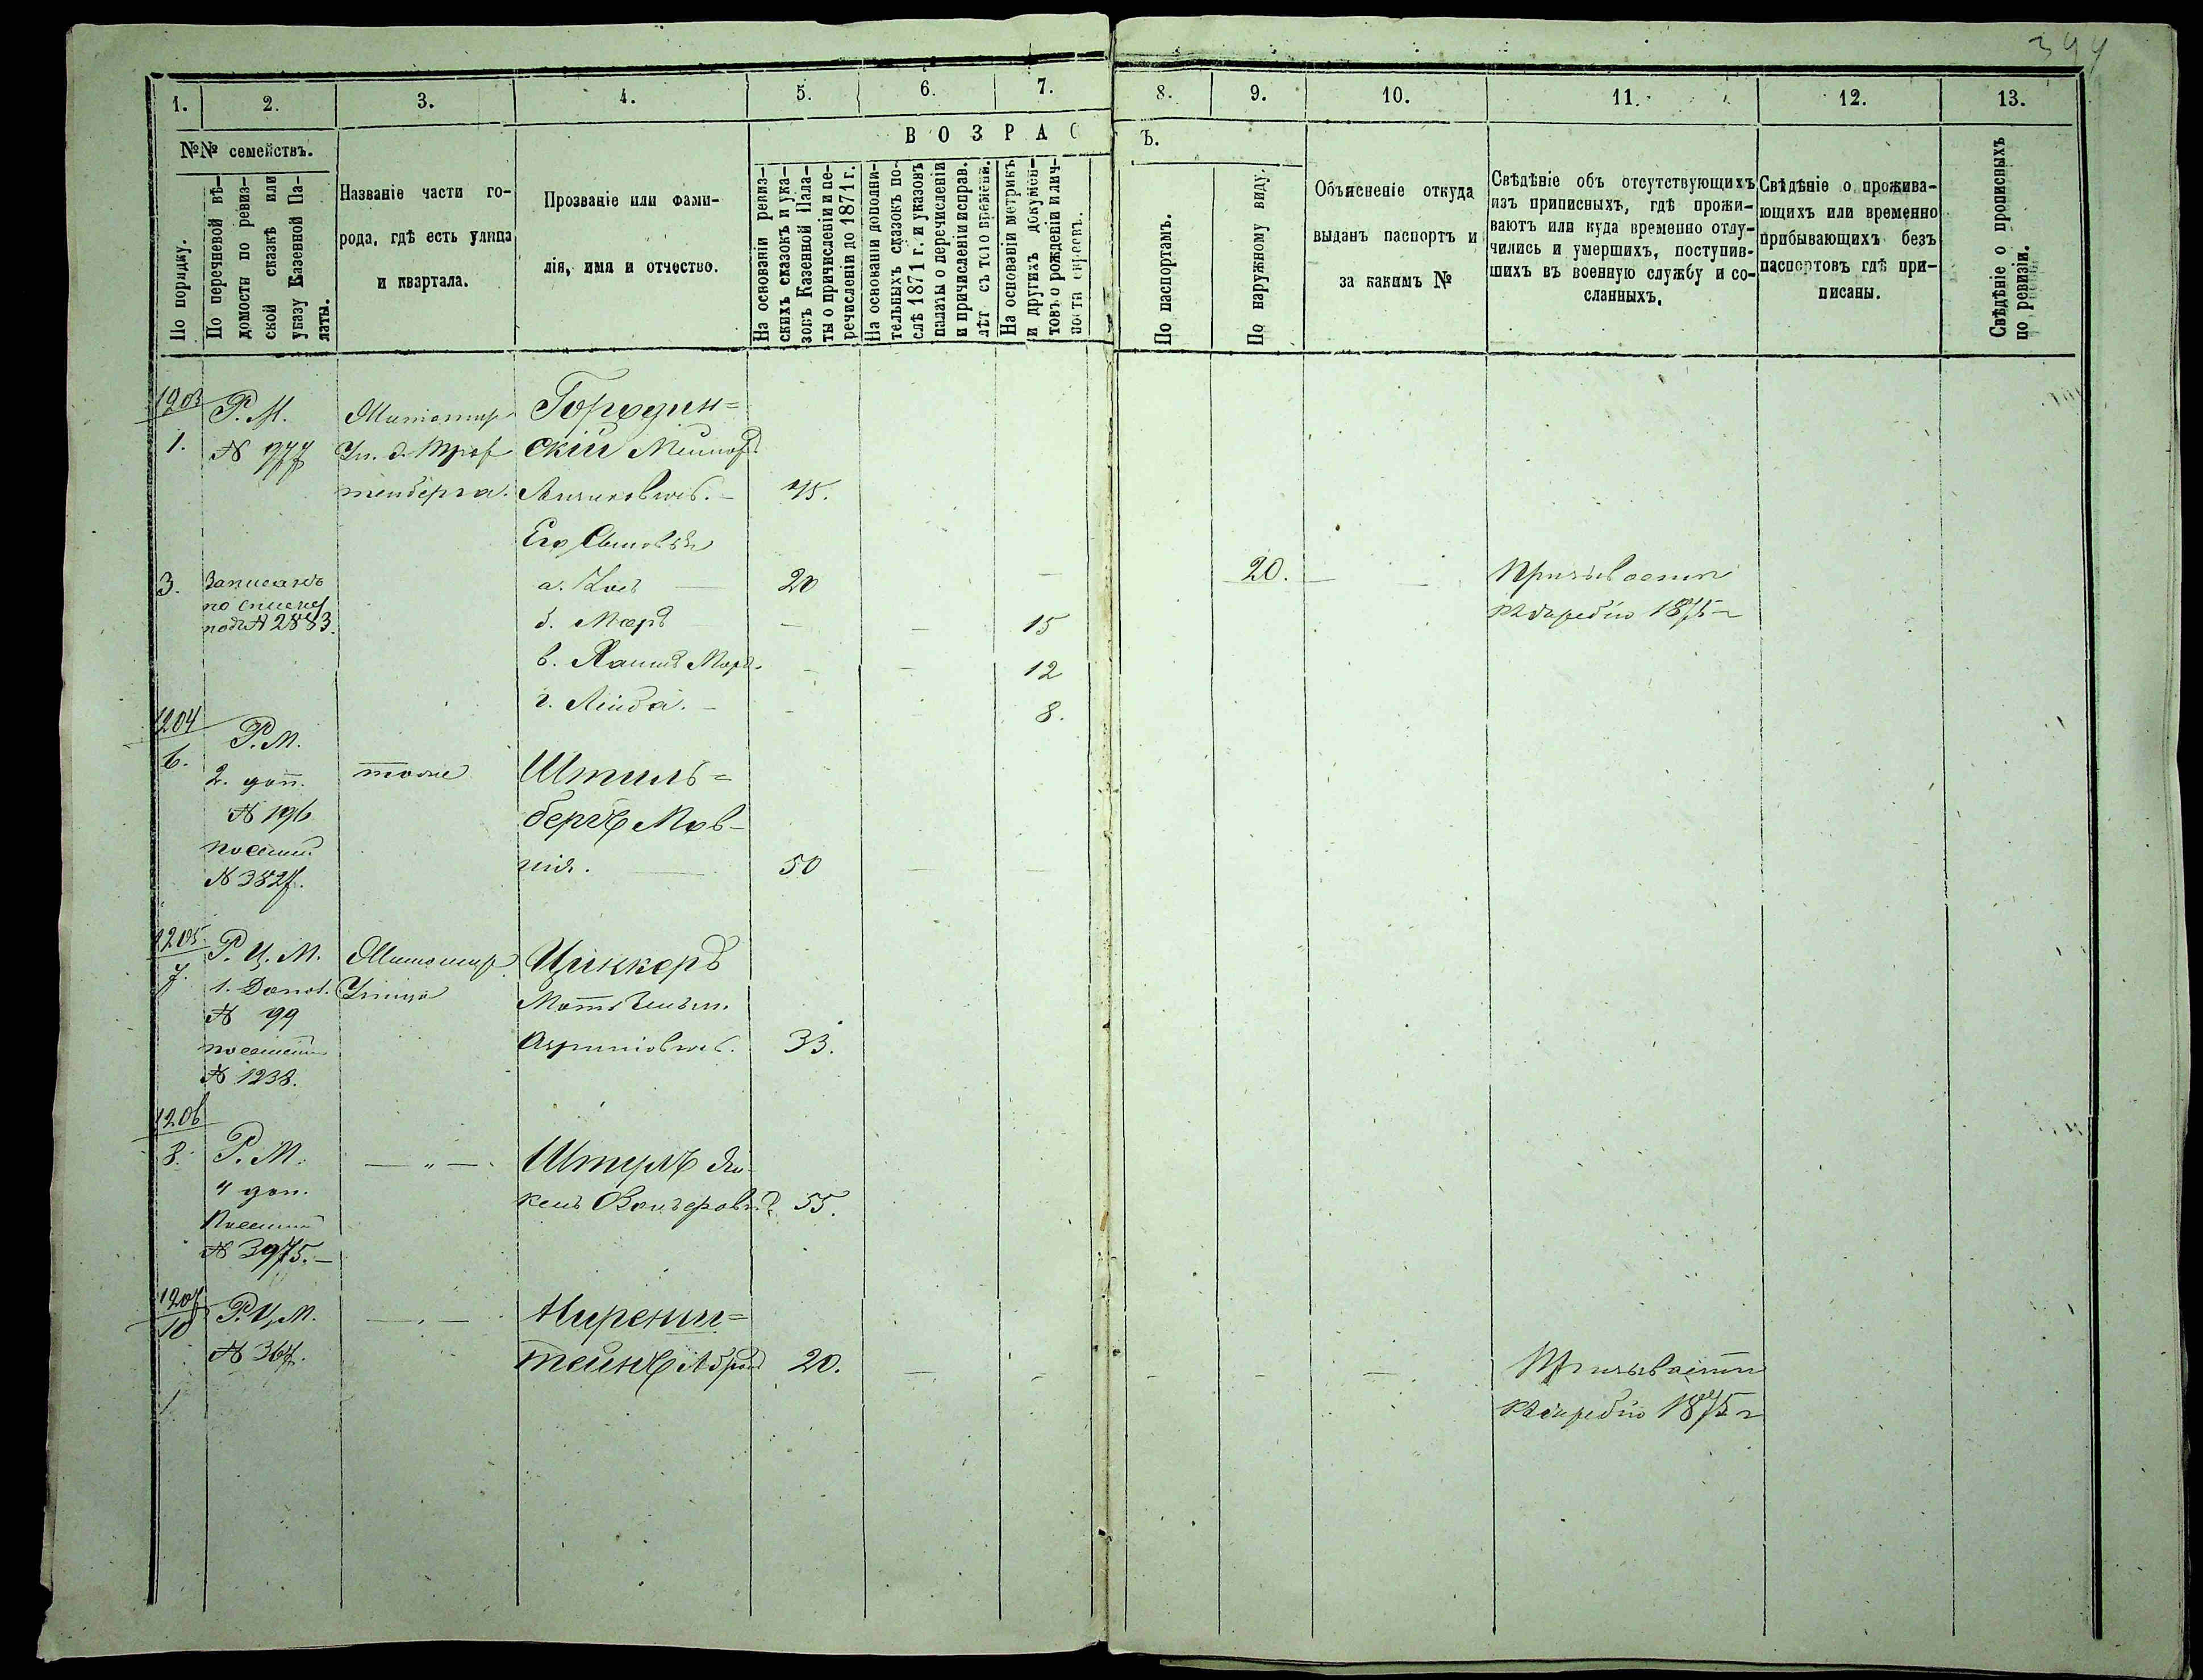 394
1. 2. 3. 4. 5. 6. 7. 8. 9. 10. 11. 12. 13.
№№ семействъ.
По порядку.
По перечневой вѣ-
домости по ревиз-
ской сказкѣ или
указу Казенной Па-
латы.
Названіе части го-
рода, гдѣ есть улица
и квартала.
Прозваніе или фами-
лія, имя и отчество.
ВОЗРАС
Ъ.
На основаніи ревиз-
скихъ сказокъ и ука-
зокъ Казенной Пала-
ты о причисленіи и пе-
речисленіи до 1871 г.
На основаніи дополни-
тельныхъ сказокъ по-
слѣ 1871 г. и указовъ
палаты о перечисленіи
и причисленіи исправ.
лѣт съ того времени.
На основаніи метрикъ
и другихъ докумен-
товъ о рожденіи и лич-
ности евреевъ.
По паспортамъ.
По наружному виду.
Объясненіе откуда
выданъ паспортъ и
за какимъ №
Свѣдѣніе объ отсутствующихъ
изъ приписныхъ, гдѣ прожи-
ваютъ или куда временно отлу-
чились и умершихъ, поступив-
шихъ въ военную службу и со-
сланныхъ.
Свѣдѣніе о прожива-
ющихъ или временно
прибывающихъ безъ
паспортовъ гдѣ при-
писаны.
Свѣдѣніе о прописныхъ
по ревизіи.
1203
1.
Р. М.
№ 977
Житомир
Ул. д.
тенберга.
Городин=
скій
45.
Его Сыновья
3.
Записанъ
по списку
под № 2883.
а. 20 20.
Призывается
къ жребію 1875 г
б. Меръ 15
в. 12
г. Лейба. 8.
1204
6.
Р. М.
2. доп.
№ 196
посемей
№ 3827.
тоже
Штиль=
бергъ Мов-
ша. 50
1205
7.
Р. Ц. М.
1. Допол.
№ 99
посемей
№ 1238.
Житомир.
Улица
Цинкеръ
33.
1206
8.
Р. М.
4 доп.
Посемей
№ 3975.
— „ —
Штернъ Ян-
кель 55.
1207
10
Р. Ц. М.
№ 367.
— „ —
Миренш=
тейнъ Абрам 20.
Призывается
къ жребію 1875 г